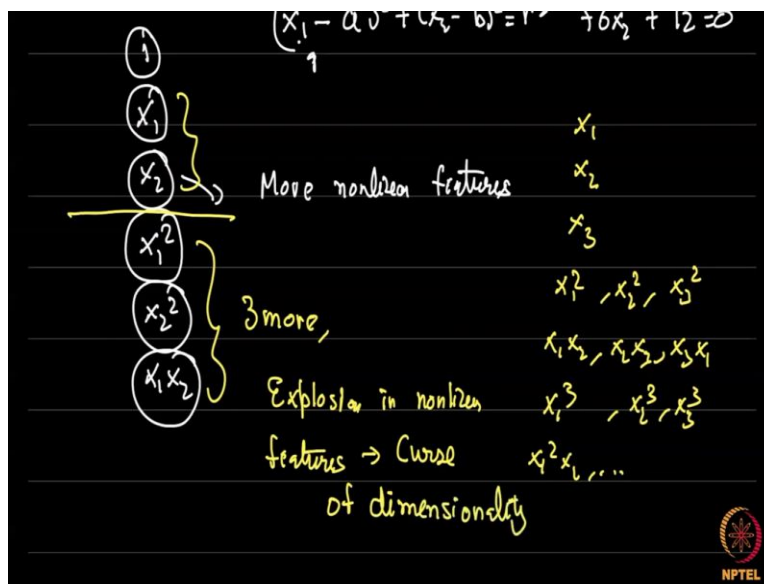 (x₁ - a)² + (x₂ - b)² = r² + 6x₂ + 12 = 0
1
x₁
x₂
More nonlinear features
x₁²
x₂²
x₁x₂
3 more,
Explosion in nonlinear
features → Curse
of dimensionality
x₁
x₂
x₃
x₁², x₂², x₃²
x₁x₂, x₂x₃, x₃x₁
x₁³, x₂³, x₃³
x₁²x₂, ....
NPTEL